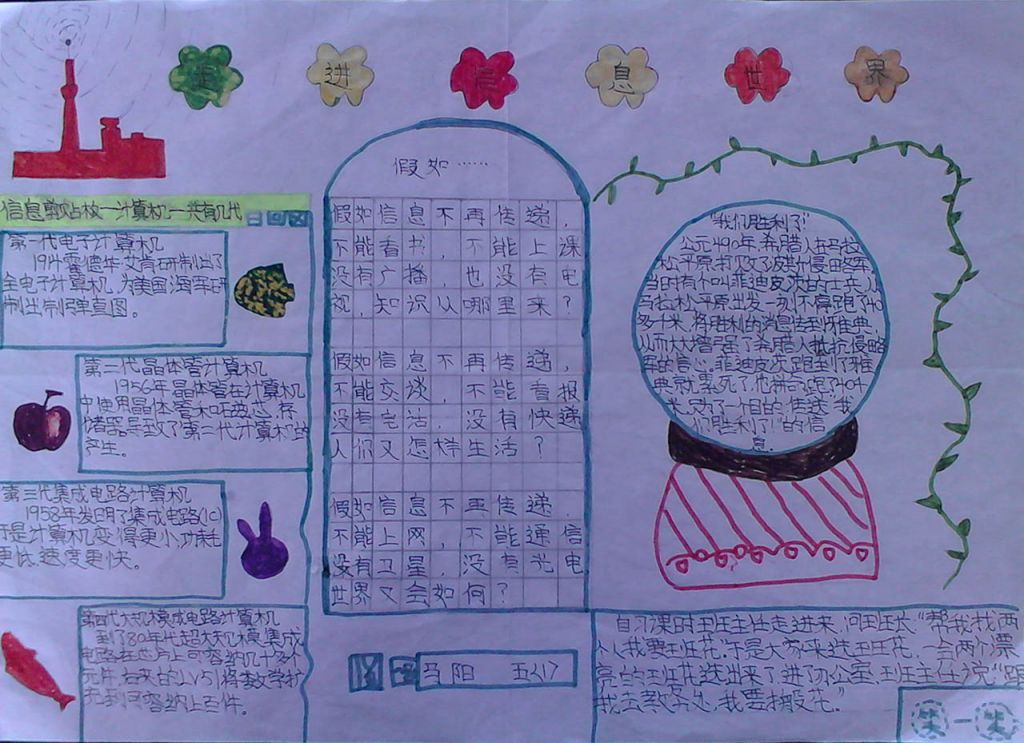 走进信息世界
信息剪贴板一计算机一共有几代
第一代电子计算机
1941霍德华·艾肯研制出了
全电子计算机,为美国海军研
制出制弹道图。
第二代晶体管计算机
1956年晶体管在计算机
中使用晶体管和磁芯存
储器导致了第二代计算机的
产生。
第三代集成电路计算机
1958年发明了集成电路(IC)
于是计算机变得更小,功耗
更低,速度更快。
第四代大规模成电路计算机
到了80年代超大规模集成
电路在芯片上可容纳几十多个
元件,后来的ULVSI将数字扩
充到可容纳上百件。
假如……
假如信息不再传递,
不能看书,不能上课
没有广播,也没有电
视,知识从哪里来?
假如信息不再传递,
不能交谈,不能看报
没有电话,没有快递
人们又怎样生活?
假如信息不再传递,
不能上网,不能通信
没有卫星,没有光电
世界又会如何?
马阳 五(7)
"我们胜利了"
公元前490年,希腊人在马拉
松平原打败了波斯侵略军
当时有个叫菲迪皮茨的士兵,从
马拉松平原出发一刻不停跑了40
多千米,将胜利的消息传到雅典,
从而大大增强了希腊人抵抗侵略
军的信心。菲迪皮茨跑到了雅
典就累死了,他拼命跑了40千
米,只为了一个目的:传达"我
们胜利了!"的信
息。
自习课时班主任走进来,问班长:"帮我找两
个人我要班花。"于是大家来选班花,一会两个漂
亮的班花选出来了,进了办公室,班主任说:"跟
我去教务处,我要搬花。"
笑一笑